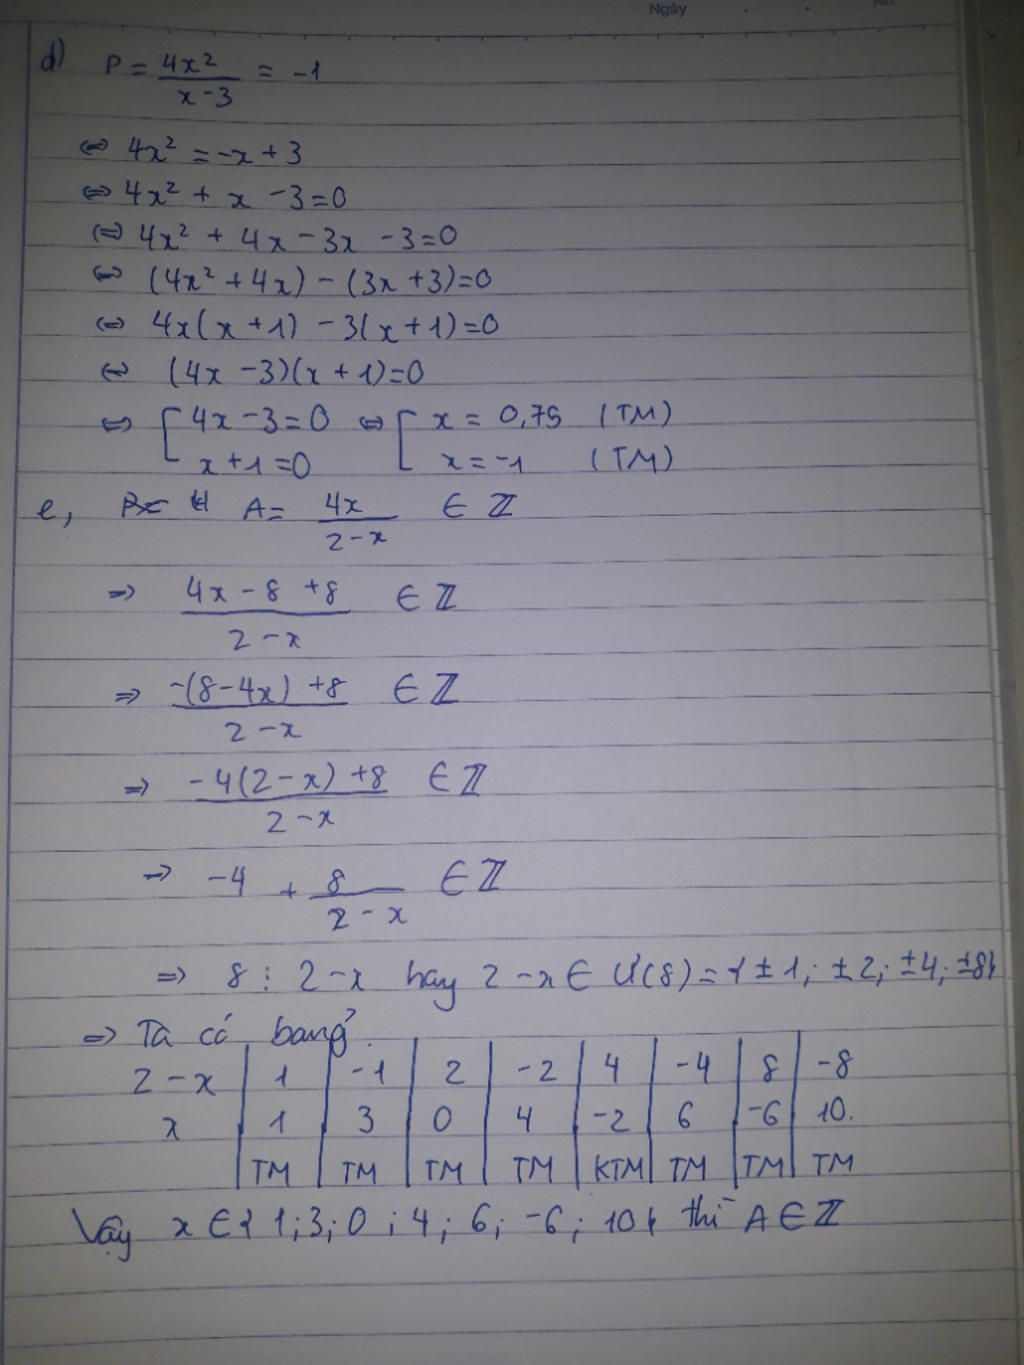 Ngày No.
d) P = 4x² / x-3 = -1
⇔ 4x² = -x + 3
⇔ 4x² + x - 3 = 0
⇔ 4x² + 4x - 3x - 3 = 0
⇔ (4x² + 4x) - (3x + 3) = 0
⇔ 4x(x + 1) - 3(x + 1) = 0
⇔ (4x - 3)(x + 1) = 0
⇔ [ 4x - 3 = 0 ⇔ [ x = 0,75 (TM)
x + 1 = 0 x = -1 (TM)
e, A = 4x / 2-x ∈ ℤ
⇒ 4x - 8 + 8 / 2 - x ∈ ℤ
⇒ -(8 - 4x) + 8 / 2 - x ∈ ℤ
⇒ -4(2 - x) + 8 / 2 - x ∈ ℤ
⇒ -4 + 8 / 2 - x ∈ ℤ
⇒ 8 ⋮ 2 - x hay 2 - x ∈ Ư(8) = {±1; ±2; ±4; ±8}
⇒ Ta có bảng.
2 - x | 1 | -1 | 2 | -2 | 4 | -4 | 8 | -8
x | 1 | 3 | 0 | 4 | -2 | 6 | -6 | 10.
| TM | TM | TM | TM | KTM | TM | TM | TM
Vậy x ∈ { 1; 3; 0; 4; 6; -6; 10} thì A ∈ ℤ